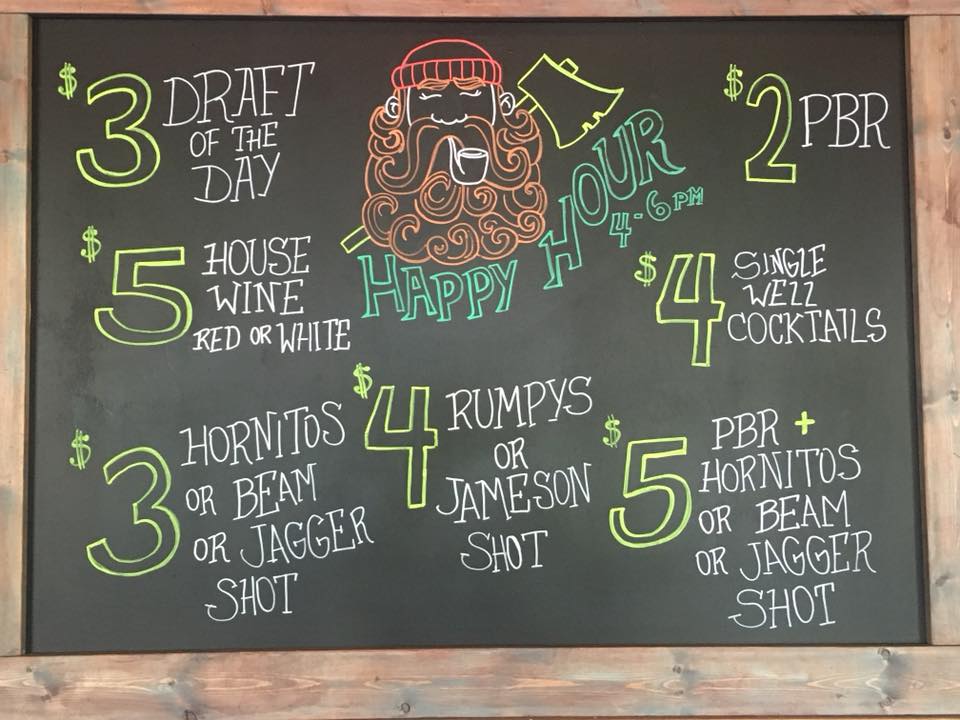 $3 DRAFT
OF THE
DAY
HAPPY HOUR
4-6 PM
$2 PBR
$5 HOUSE
WINE
RED OR WHITE
$4 SINGLE
WELL
COCKTAILS
$3 HORNITOS
OR BEAM
OR JAGGER
SHOT
$4 RUMPYS
OR
JAMESON
SHOT
$5 PBR +
HORNITOS
OR BEAM
OR JAGGER
SHOT